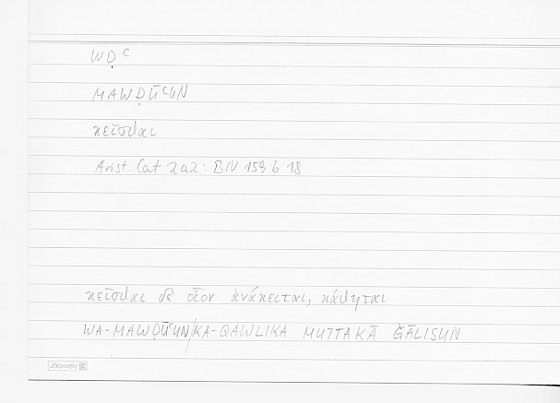 WḌʿ
MAWḌŪʿUN
κεῖσθαι
Arist. Cat 2a2: BN 159 b 18
κεῖσθαι δὲ οἷον ἀνάκειται, κάθηται
WA-MAWḌŪʿUN/KA-QAWLIKA MUTTAKĀ ǦĀLISUN